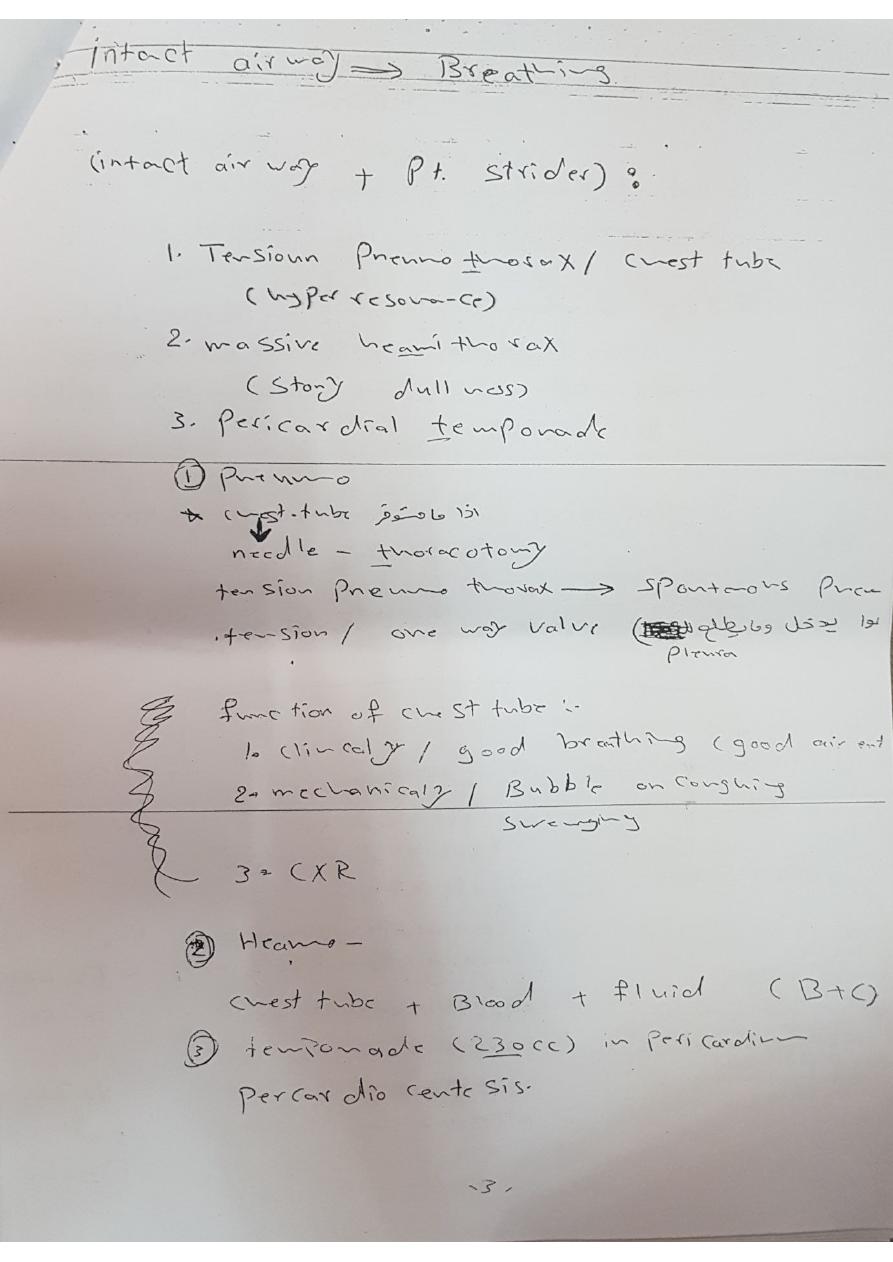 intact airway ⇒ Breathing
(intact air way + Pt. strider) :
1. Tensioun Pneumo thorax / chest tube
(hyper resona-ce)
2. massive heamithorax
(Stony dullness)
3. Pericardial temponade
① Pneumo
* chest.tube اذا مامتوفر
↓
needle - thoracotomy
tension Pneumo thorax → spontaous Pneu
.tension / one way valve (هوا يدخل ومايطلع
pleura
function of chest tube :-
1. clincaly / good breathing (good air ent
2. mechanicaly / Bubble on Coughing
3. CXR
② Heamo-
chest tube + Blood + fluid (B+C)
③ temponade (230cc) in Pericardium
percardio centesis.
-3-